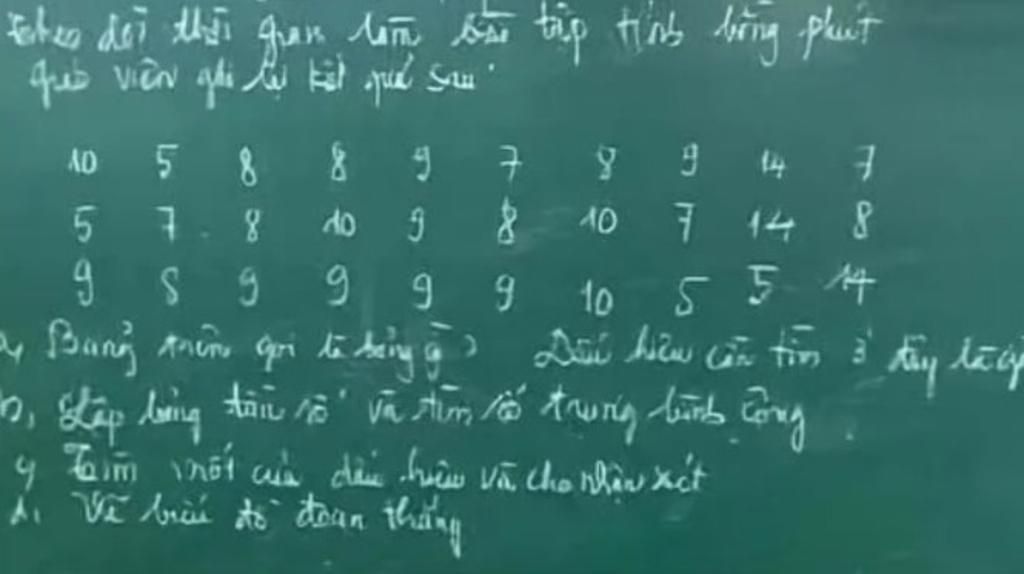 theo dõi thời gian làm bài tập tính bằng phút
giáo viên ghi lại kết quả sau
10 5 8 8 9 7 8 9 14 7
5 7 8 10 9 8 10 7 14 8
9 8 9 9 9 9 10 5 5 14
a, Bảng trên gọi là bảng gì? Dấu hiệu cần tìm ở đây là gì
b, Lập bảng tần số và tìm số trung bình cộng
c, Tìm mốt của dấu hiệu và cho nhận xét
d, Vẽ biểu đồ đoạn thẳng